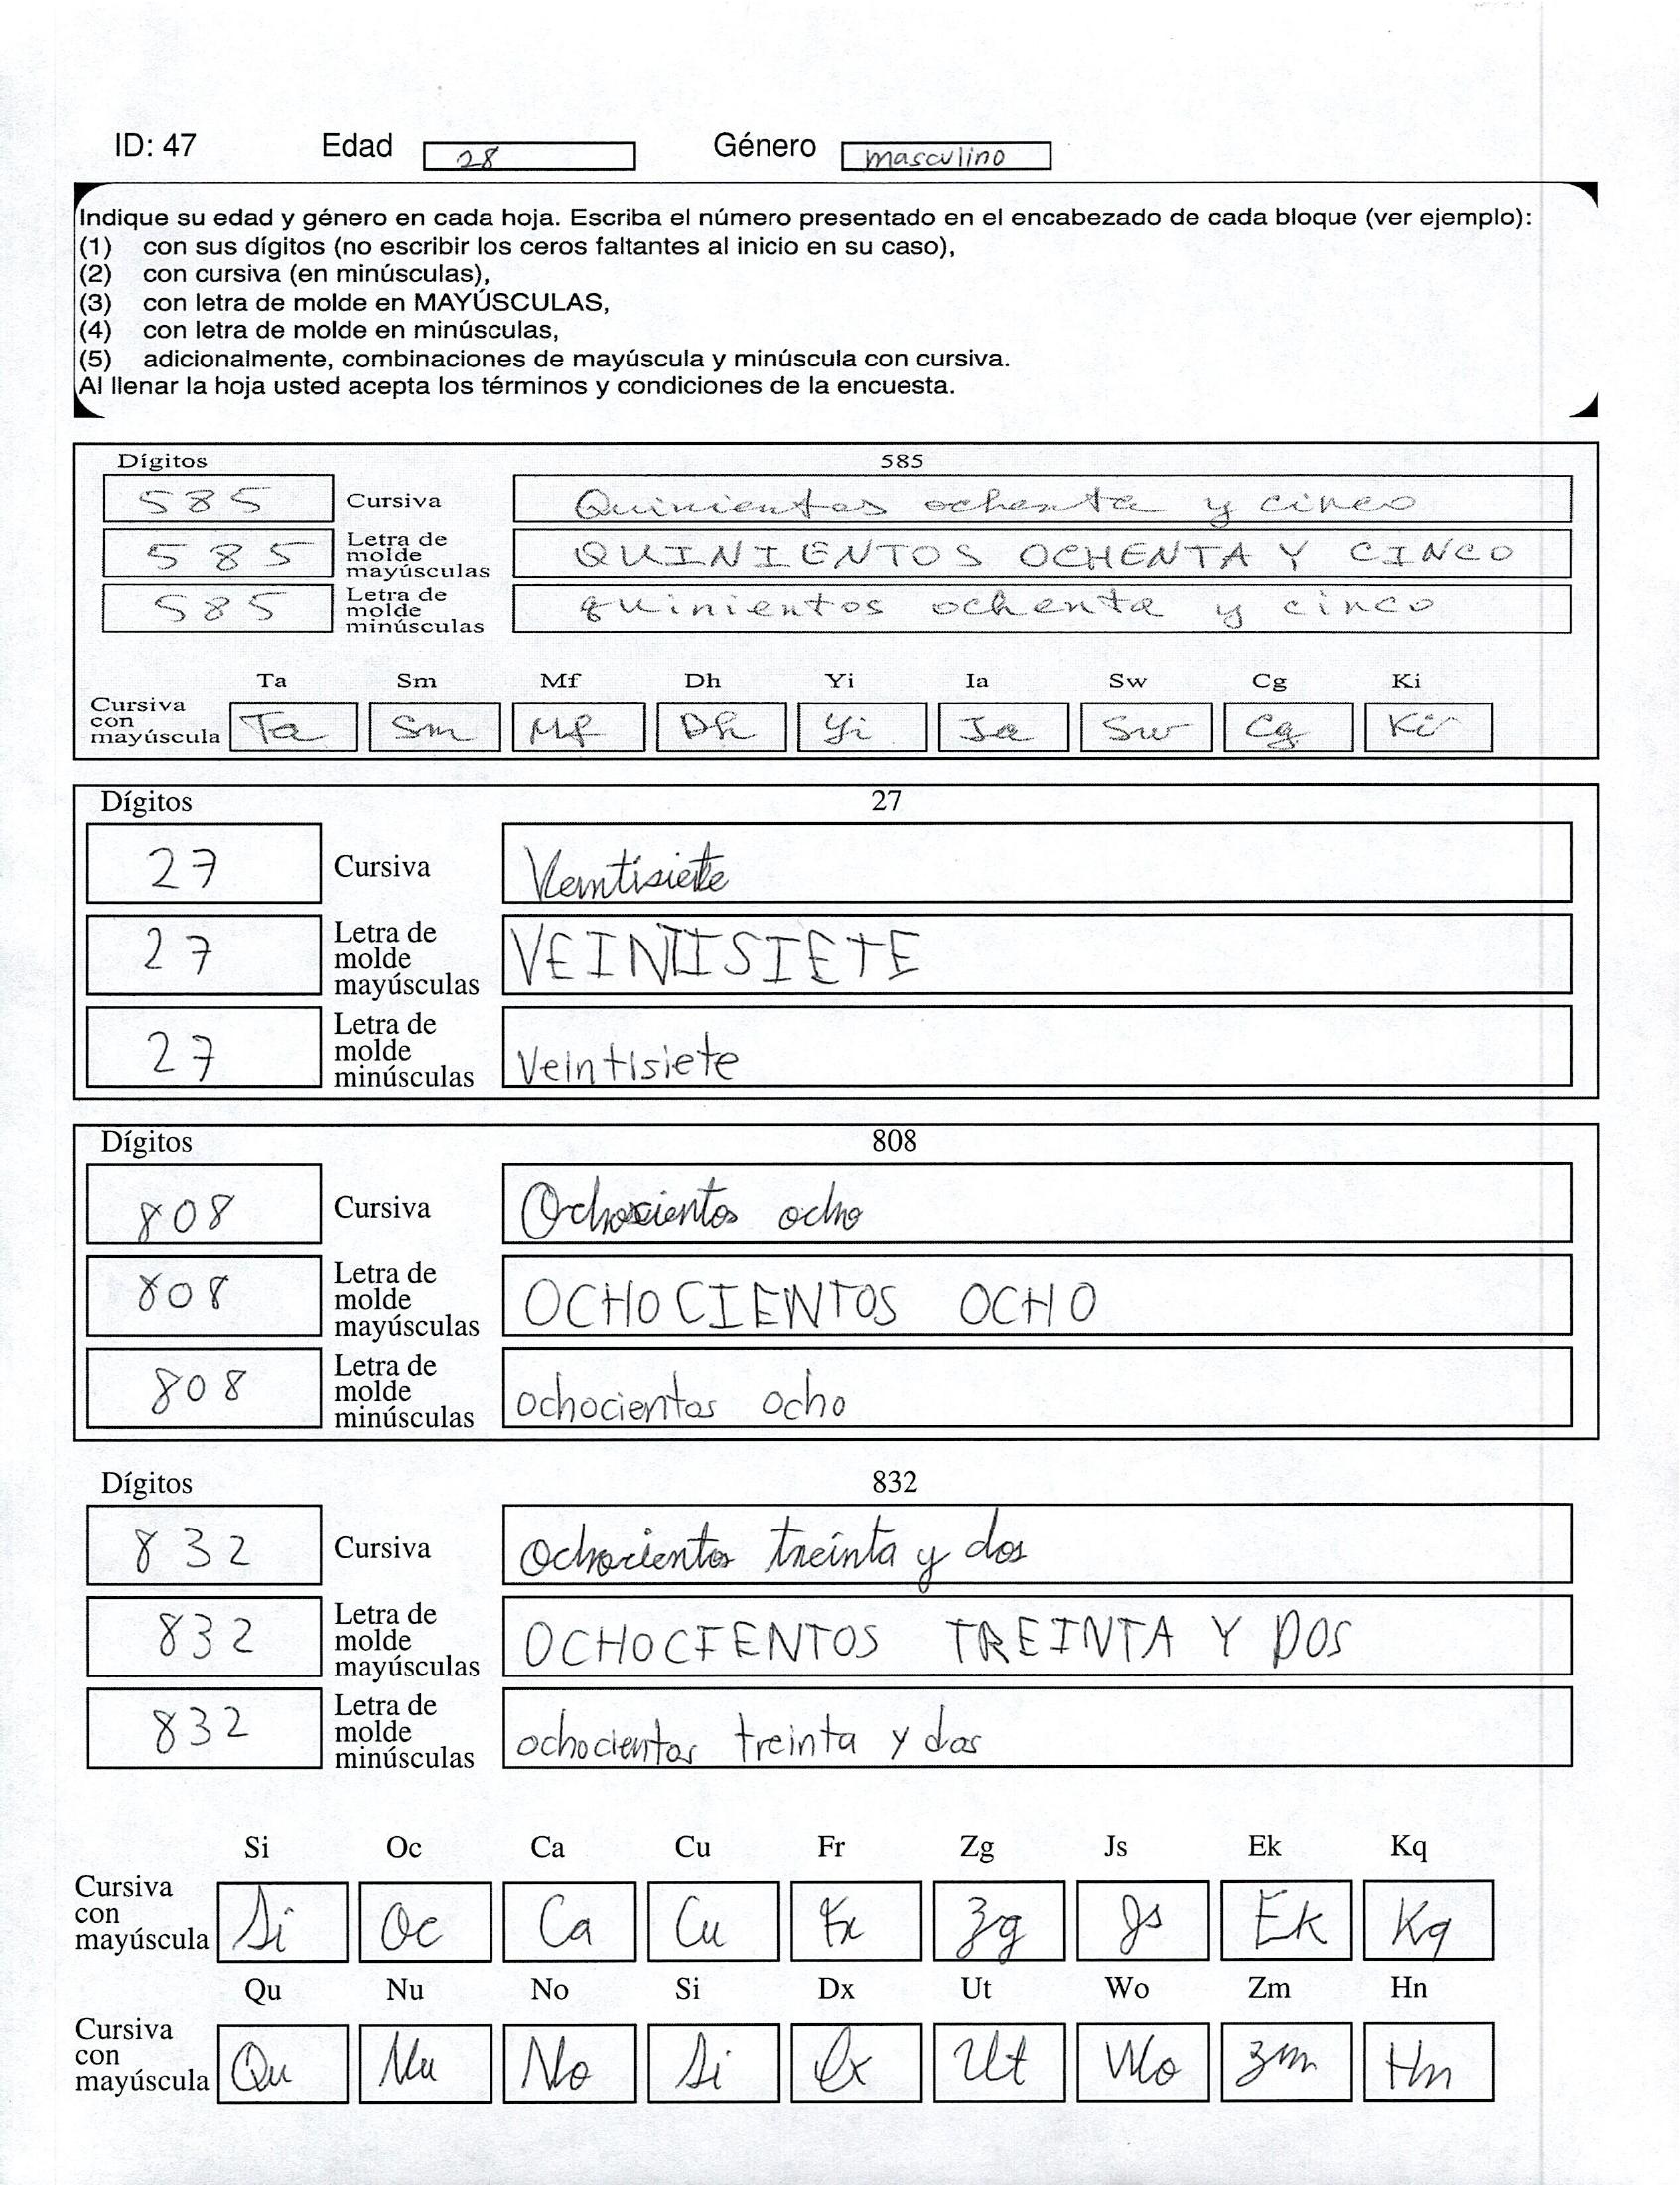 ID: 47 Edad 28 Género masculino
Indique su edad y género en cada hoja. Escriba el número presentado en el encabezado de cada bloque (ver ejemplo):
(1) con sus dígitos (no escribir los ceros faltantes al inicio en su caso),
(2) con cursiva (en minúsculas),
(3) con letra de molde en MAYÚSCULAS,
(4) con letra de molde en minúsculas,
(5) adicionalmente, combinaciones de mayúscula y minúscula con cursiva.
Al llenar la hoja usted acepta los términos y condiciones de la encuesta.
Dígitos 585
585 Cursiva Quinientos ochenta y cinco
585 Letra de molde mayúsculas QUINIENTOS OCHENTA Y CINCO
585 Letra de molde minúsculas quinientos ochenta y cinco
Ta Sm Mf Dh Yi Ia Sw Cg Ki
Cursiva con mayúscula Ta Sm Mf Dh Yi Ia Sw Cg Ki
Dígitos 27
27 Cursiva Veintisiete
27 Letra de molde mayúsculas VEINTISIETE
27 Letra de molde minúsculas veintisiete
Dígitos 808
808 Cursiva Ochocientos ocho
808 Letra de molde mayúsculas OCHOCIENTOS OCHO
808 Letra de molde minúsculas ochocientos ocho
Dígitos 832
832 Cursiva Ochocientos treinta y dos
832 Letra de molde mayúsculas OCHOCIENTOS TREINTA Y DOS
832 Letra de molde minúsculas ochocientos treinta y dos
Si Oc Ca Cu Fr Zg Js Ek Kq
Cursiva con mayúscula Si Oc Ca Cu Fr Zg Js Ek Kq
Qu Nu No Si Dx Ut Wo Zm Hn
Cursiva con mayúscula Qu Nu No Si Dx Ut Wo Zm Hn